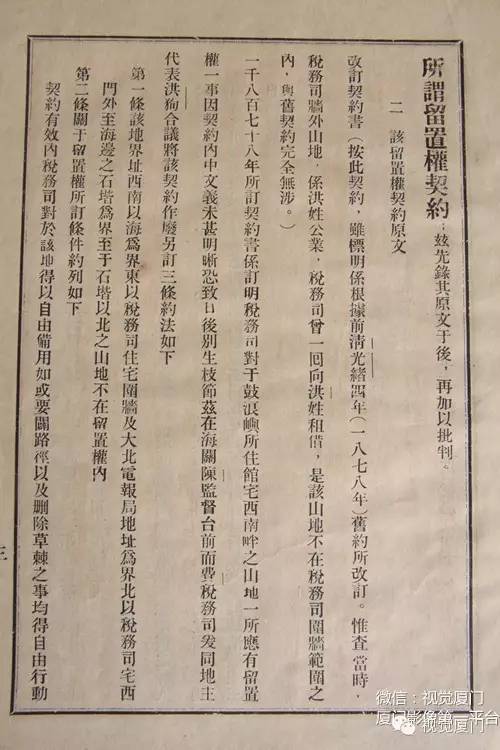 所謂留置權契約：玆先錄其原文于後，再加以批判。
二　該留置權契約原文
改訂契約書（按此契約，雖標明係根據前清光緒四年（一八七八年）舊約所改訂。惟查當時，
稅務司牆外山地，係洪姓公業，稅務司曾一回向洪姓租借，是該山地不在稅務司圍牆範圍之
內，與舊契約完全無涉。）
一千八百七十八年所訂契約書係訂明稅務司對于鼓浪嶼所住館宅西南畔之山地一所應有留置
權一事因契約內中文義未甚明晰恐致日後別生枝節茲在海關陳監督台前而費稅務司爰同地主
代表洪狗合議將該契約作廢另訂三條約法如下
第一條該地界址西南以海爲界東以稅務司住宅圍牆及大北電報局地址爲界北以稅務司宅西
門外至海邊之石塔爲界至于石塔以北之山地不在留置權內
第二條關于留置權所訂條件約列如下
契約有效內稅務司對於該地得以自由備用如或要闢路徑以及刪除草棘之事均得自由行動
三
微信：视觉厦门
厦门影像第一平台
视觉厦门